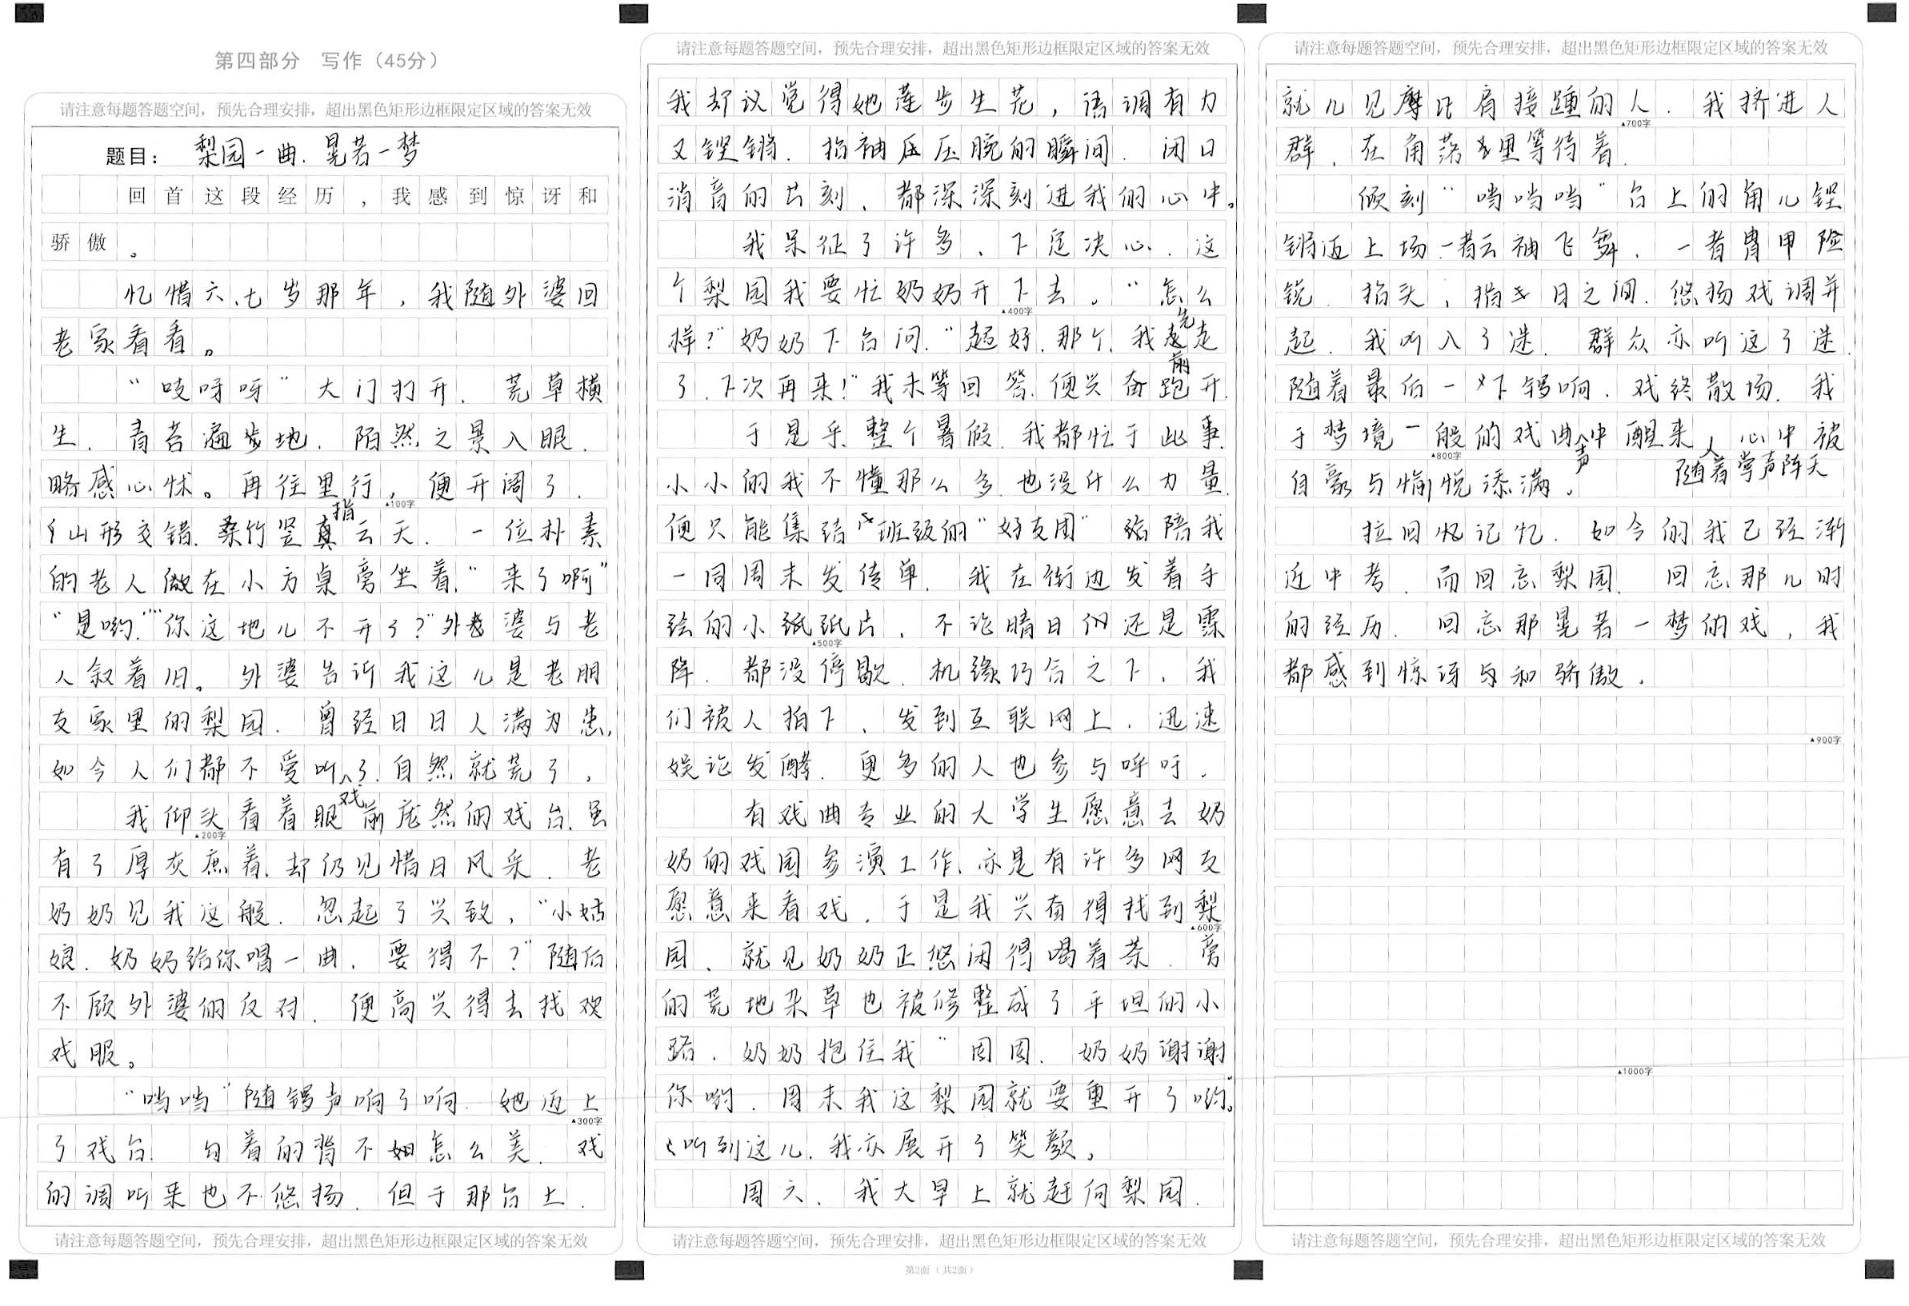 第四部分 写作（45分）
请注意每题答题空间，预先合理安排，超出黑色矩形边框限定区域的答案无效
题目： 梨园一曲.晃若一梦
回首这段经历，我感到惊讶和
骄傲。
忆惜六、七岁那年，我随外婆回
老家看看。
“吱呀呀”大门打开．荒草横
生．青苔遍地．陌然之景入眼．
略感心怵。再往里行，便开阔了．
▲100字
山形交错．桑竹竖指云天．一位朴素
的老人在小方桌旁坐着．“来了啊”
“是哟．”“你这地儿不开了？”外婆与老
人叙着旧。外婆告诉我这儿是老朋
友家里的梨园．曾经日日人满为患，
如今人们都不爱听戏了．自然就荒了，
我仰头看着眼前庞然的戏台．虽
▲200字
有了厚灰庶着．却仍见惜日风采．老
奶奶见我这般．忽起了兴致，“小姑
娘．奶奶给你唱一曲．要得不？”随后
不顾外婆的反对．便高兴得去找戏
戏服。
“啪啪”随锣声响了响．她迈上
▲300字
了戏台．勾着的背不如怎么美．戏
的调听来也不悠扬．但于那台上．
请注意每题答题空间，预先合理安排，超出黑色矩形边框限定区域的答案无效
请注意每题答题空间，预先合理安排，超出黑色矩形边框限定区域的答案无效
我却议觉得她莲步生花，语调有力
又铿锵．抬袖压压腕的瞬间．闭日
消音的片刻、都深深刻进我的心中。
我呆征了许多、下定决心．这
个梨园我要忙奶奶开下去。“怎么
▲400字
样？”奶奶下台问．“超好．那个．我先走
了．下次再来！”我未等回答．便兴奋跑开
前
于是乎．整个暑假．我都忙于此事．
小小的我不懂那么多．也没什么力量．
便只能集结班级的“好友团”．陪我
一同周末发传单．我在街边发着手
绘的小纸纸片．不论晴日还是霖
▲500字
降．都没停歇．机缘巧合之下，我
们被人拍下、发到互联网上．迅速
娱论发酵．更多的人也参与呼吁．
有戏曲专业的大学生愿意去奶
奶的戏园参演工作．亦是有许多网友
愿意来看戏．于是我兴奋得找到梨
▲600字
园、就见奶奶正悠闲得喝着茶．旁
的荒地杂草也被修整成了平坦的小
路．奶奶抱住我“囡囡．奶奶谢谢
你哟．周末我这梨园就要重开了哟。
听到这儿．我亦展开了笑颜。
周六．我大早上就赶向梨园．
请注意每题答题空间，预先合理安排，超出黑色矩形边框限定区域的答案无效
第2面（共2面）
请注意每题答题空间，预先合理安排，超出黑色矩形边框限定区域的答案无效
就儿见摩比肩接踵的人．我挤进人
▲700字
群．在角落里等待着．
倾刻“啪啪啪”台上的角儿铿
锵迈上场．一者云袖飞舞．一者胄甲险
锐．抬头，指日之间．悠扬戏调并
起．我听入了迷．群众亦听这了迷．
随着最后一下锣响．戏终散场．我
于梦境一般的戏曲声中醒来．心中被
▲800字
随着掌声阵天
自豪与愉悦添满。
拉回忆记忆．如今的我已经渐
近中考．而回忘梨园．回忘那儿时
的经历．回忘那晃若一梦的戏，我
都感到惊讶与和骄傲．
▲900字
▲1000字
请注意每题答题空间，预先合理安排，超出黑色矩形边框限定区域的答案无效